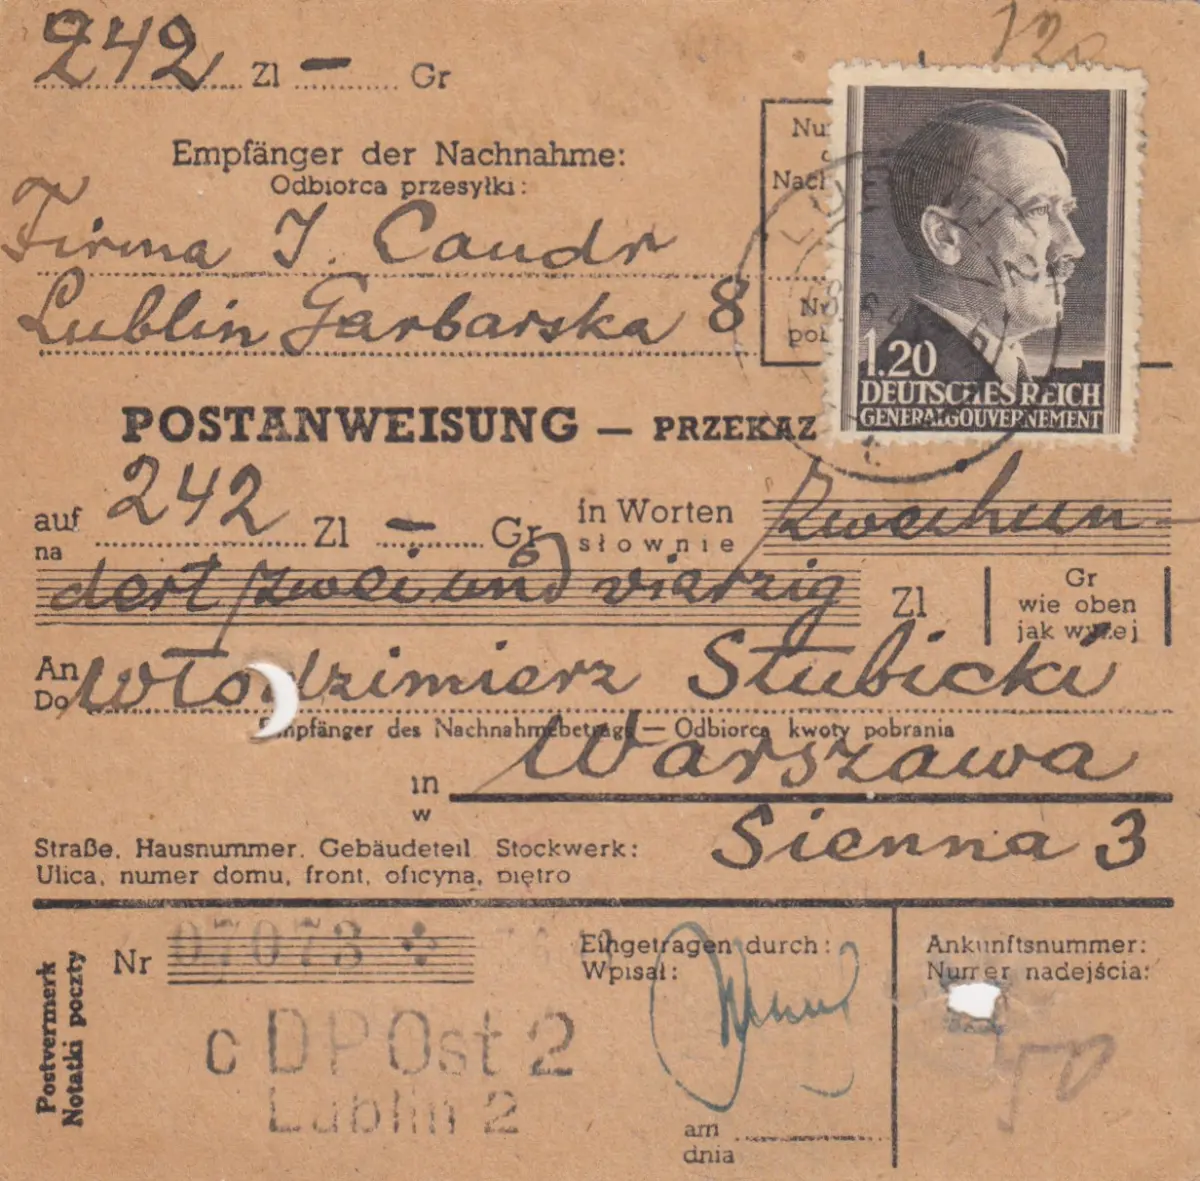 242 Zl — Gr
120
Empfänger der Nachnahme:
Odbiorca przesyłki:
Firma J. Caudr
Lublin Garbarska 8
Nu
Nach
Nr
pol
1.20
DEUTSCHES REICH
GENERALGOUVERNEMENT
POSTANWEISUNG — PRZEKAZ
auf 242 Zl — Gr in Worten Zweihun-
na słownie
dert zwei und vierzig Zl Gr
wie oben
jak wyżej
An Włodzimierz Stubicki
Do
Empfänger des Nachnahmebetrags — Odbiorca kwoty pobrania
in Warszawa
w
Straße, Hausnummer, Gebäudeteil, Stockwerk: Sienna 3
Ulica, numer domu, front, oficyna, piętro
Postvermerk
Notatki poczty
Nr 07073
Eingetragen durch:
Wpisał:
Ankunftsnummer:
Numer nadejścia:
c DPOst 2
Lublin 2
am
dnia